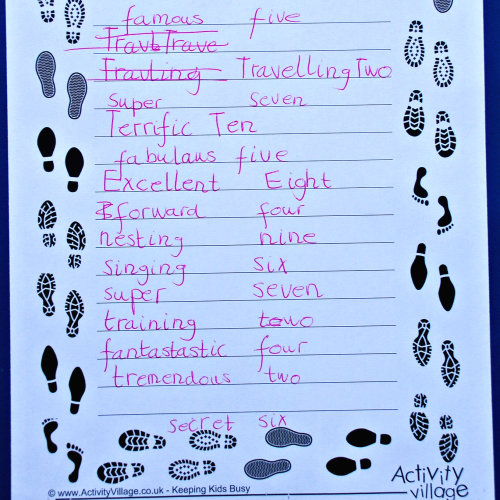 Activity
Village
famous five
Travelling Two
super seven
Terrific Ten
fabulaus five
Excellent Eight
forward four
nesting nine
singing six
super seven
training two
fantastastic four
tremendous two
secret six
Activity
village
© www.ActivityVillage.co.uk - Keeping Kids Busy